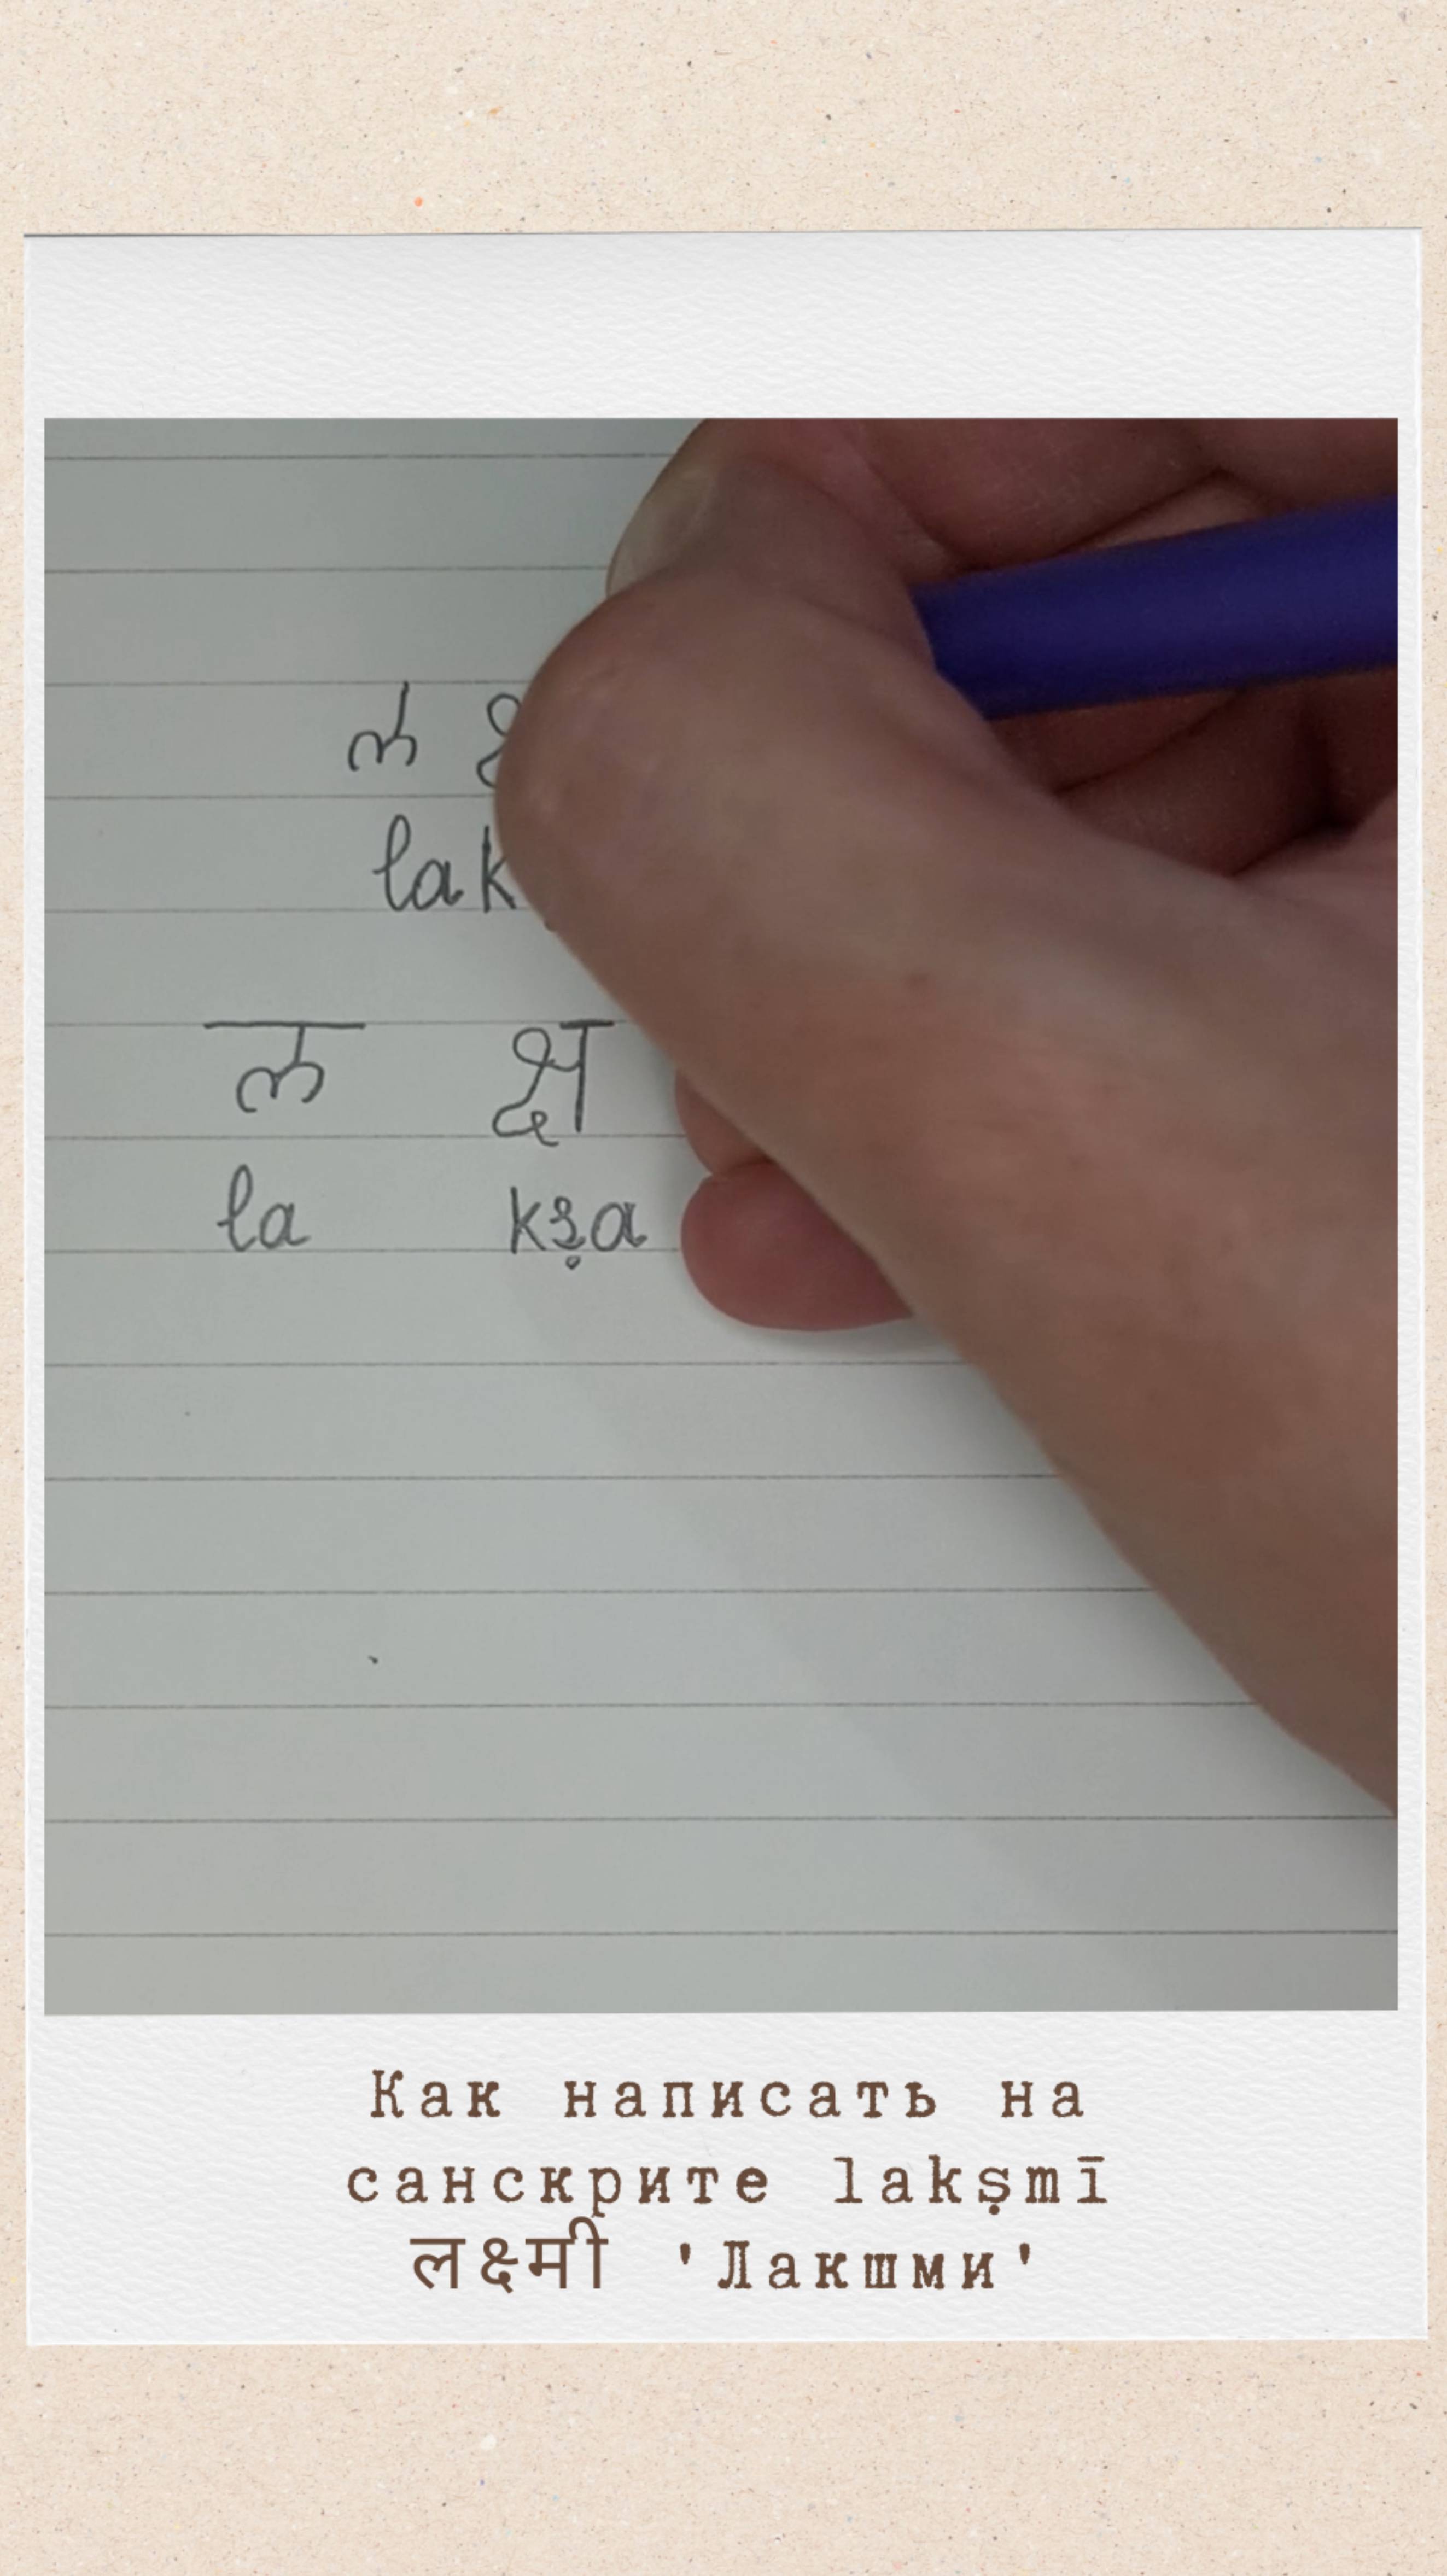 ल
lak
ल क्ष
la kṣa
Как написать на
санскрите lakṣmī
लक्ष्मी 'Лакшми'